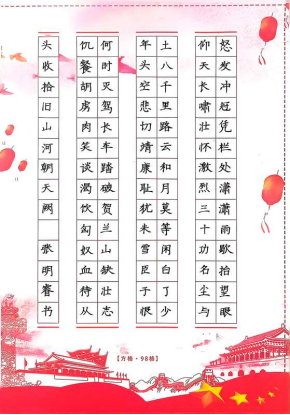 怒发冲冠凭栏处潇潇雨歇抬望眼
仰天长啸壮怀激烈三十功名尘与
土八千里路云和月莫等闲白了少
年头空悲切靖康耻犹未雪臣子恨
何时灭驾长车踏破贺兰山缺壮志
饥餐胡虏肉笑谈渴饮匈奴血待从
头收拾旧山河朝天阙 张明睿书
【方格·98格】